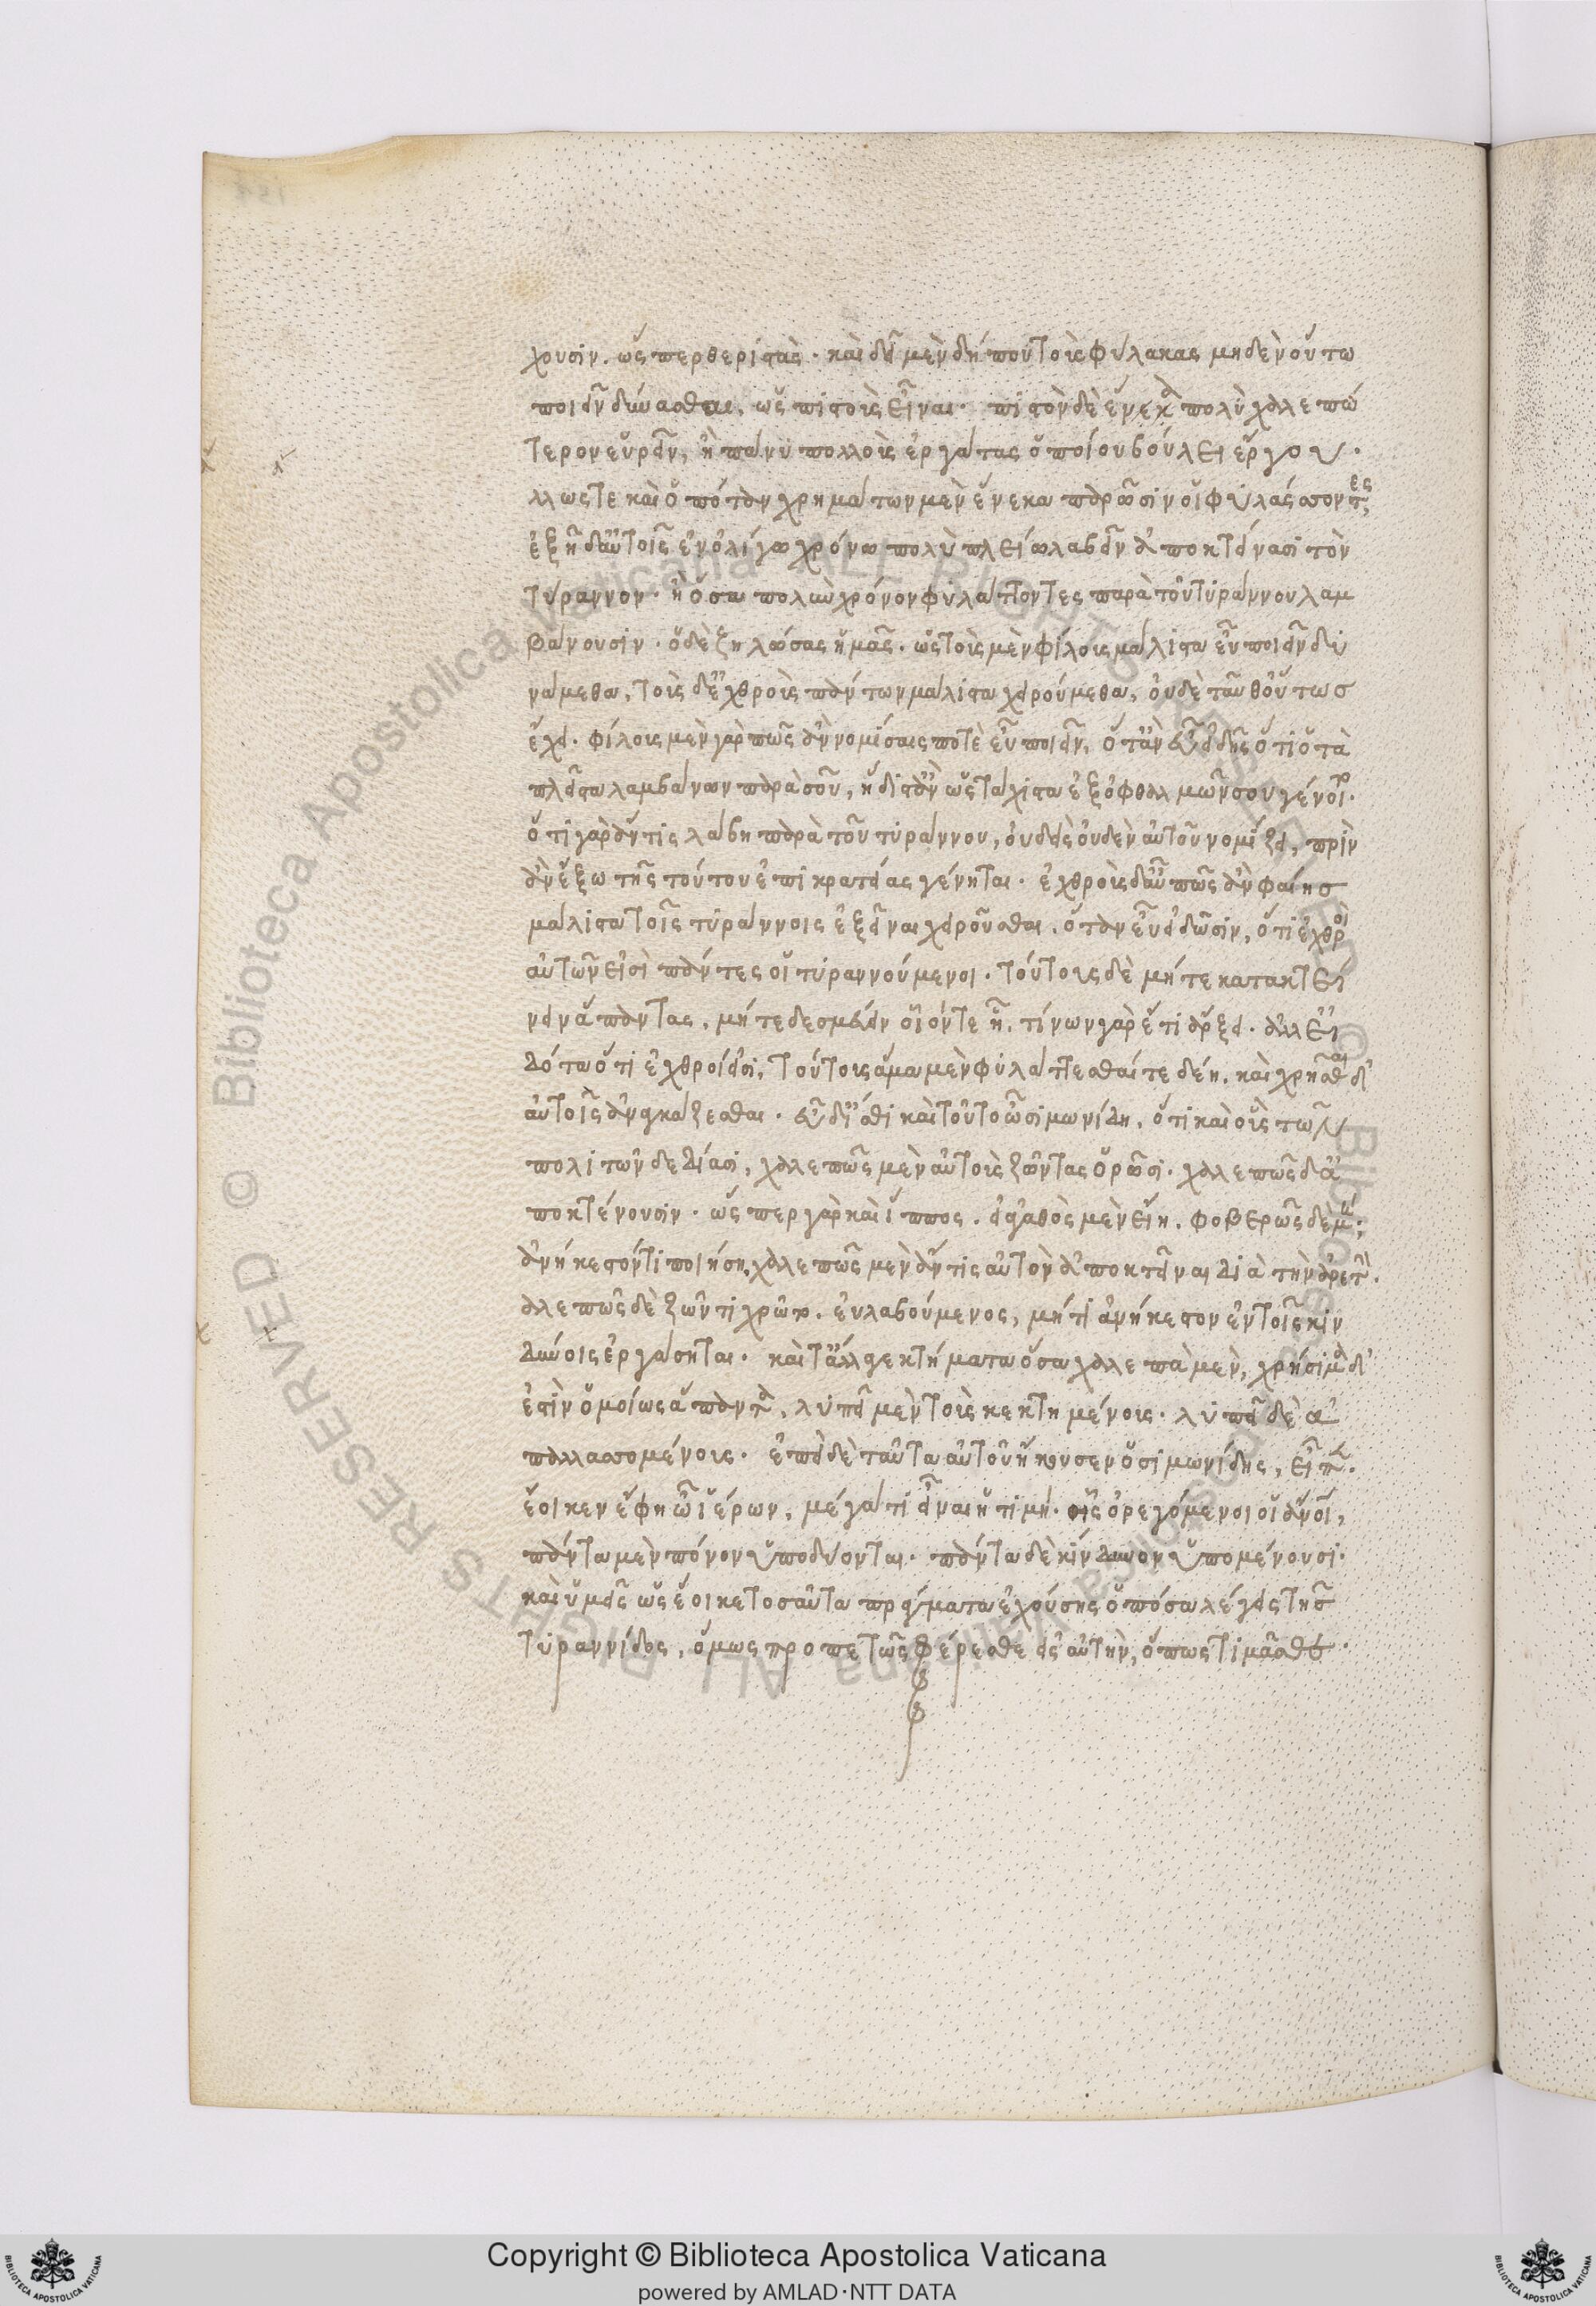 χουσιν. ὥσπερ θεριστάς. καὶ δεῖ μὲν δή που τοὺς φύλακας μηδὲν οὕτω
ποιεῖν δύνασθαι, ὡς πιστοὺς εἶναι. πιστὸν δὲ ἕνα πολὺ χαλεπώ
τερον εὑρεῖν, ἢ πάνυ πολλοὺς ἐργάτας ὁποίου βούλει ἔργου.
λλως τε καὶ ὁπόταν χρημάτων μὲν ἕνεκα παρῶσιν οἱ φυλάσσοντες,
ἐξῇ δ' αὐτοῖς ἐν ὀλίγω χρόνω πολὺ πλείω λαβεῖν ἀποκτείνασι τὸν
τύραννον. ἢ ὅσα πολὺν χρόνον φυλάττοντες παρὰ τοῦ τυράννου λαμ
βάνουσιν. ὃ δὲ ζηλώσας ἡμᾶς. ὡς τοὺς μὲν φίλους μάλιστα εὖ ποιεῖν δυ
νάμεθα, τοὺς δὲ ἐχθροὺς πάντων μάλιστα χειρούμεθα, οὐδὲ ταῦθ' οὕτως
ἔχει. φίλους μὲν γὰρ πῶς ἂν νομίσαις ποτὲ εὖ ποιεῖν, ὅταν εὖ εἰδῇς ὅτι ὁ τὰ
πλεῖστα λαμβάνων παρὰ σοῦ, ἥδιστ' ἂν ὡς τάχιστα ἐξ ὀφθαλμῶν σου γένοιτο.
ὅτι γὰρ ἄν τις λάβη παρὰ τοῦ τυράννου, οὐδεὶς οὐδὲν αὑτοῦ νομίζει, πρὶν
ἂν ἔξω τῆς τούτου ἐπικρατείας γένηται. ἐχθροὺς δ' αὖ πῶς ἂν φαίης
μάλιστα τοῖς τυράννοις ἐξεῖναι χειροῦσθαι. ὅταν εὖ εἰδῶσιν, ὅτι ἐχθροὶ
αὐτῶν εἰσὶ πάντες οἱ τυραννούμενοι. τούτους δὲ μήτε κατακτεί
νειν ἅπαντας, μήτε δεσμεύειν οἷόν τε ἦ. τίνων γὰρ ἔτι ἄρξει. ἀλλ' εἰ
δότα ὅτι ἐχθροί εἰσι, τούτους ἅμα μὲν φυλάττεσθαί τε δέη. καὶ χρῆσθαι δ'
αὐτοῖς ἀναγκάζεσθαι. εὖ δ' ἴσθι καὶ τοῦτο ὦ σιμωνίδη, ὅτι καὶ οὓς τῶν
πολιτῶν δεδίασι, χαλεπῶς μὲν αὐτοὺς ζῶντας ὁρῶσι. χαλεπῶς δ' ἀ
ποκτένουσιν. ὥσπερ γὰρ καὶ ἵππος. εἰ ἀγαθὸς μὲν εἴη. φοβερῶς δὲ μή;
ἀνήκεστόν τι ποιήση. χαλεπῶς μὲν ἄν τις αὐτὸν ἀποκτεῖναι διὰ τὴν ἀρετήν.
αλεπῶς δὲ ζῶντι χρῶτο. εὐλαβούμενος, μή τι ἀνήκεστον ἐν τοῖς κιν
δύνοις ἐργάσηται. καὶ τἄλλά γε κτήματα ὅσα χαλεπὰ μὲν, χρήσιμα δ'
ἐστὶν ὁμοίως ἅπαντα, λυπεῖ μὲν τοὺς κεκτημένους. λυπεῖ δὲ ἀ
παλλασσομένους. ἐπεὶ δὲ ταῦτα αὐτοῦ ἤκουσεν ὁ σιμωνίδης, εἶπεν.
ἔοικεν ἔφη ὦ ἱέρων, μέγα τι εἶναι ἡ τιμή. ἧς ὀρεγόμενοι οἱ ἄνοι,
πάντα μὲν πόνον ὑποδύονται. πάντα δὲ κίνδυνον ὑπομένουσι.
καὶ ὑμεῖς ὡς ἔοικε τοσαῦτα πράγματα ἐχούσης ὁπόσα λέγεις τῆς
τυραννίδος, ὅμως προπετῶς φέρεσθε εἰς αὐτὴν, ὅπως τιμᾶσθε.
Copyright © Biblioteca Apostolica Vaticana
powered by AMLAD·NTT DATA